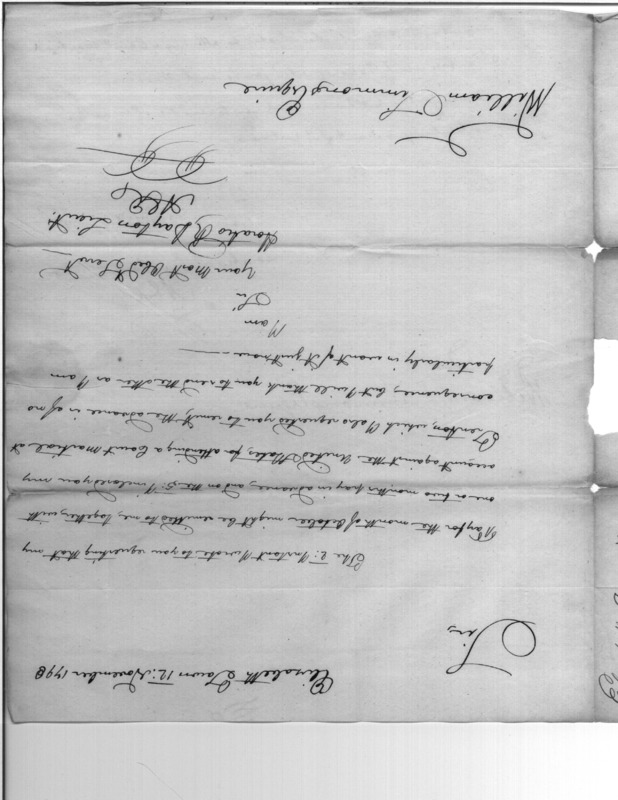 Elizabeth Town 12. November 1798
Sir,
The 2. Instant I wrote to you requesting that my
Pay for the month of October might be remitted to me, together with
one or two months pay in advance, and on the 5. I inclosed you my
account against the United States, for attending a Court Martial at
Trenton, which I also requested you to remit, the advance is of no
consequence, but I will thank you to send the other as I am
particularly in want of it just now
I am
Sir
your most Obed Servt
Horatio R Dayton Lieut.
William Simmons Esquire